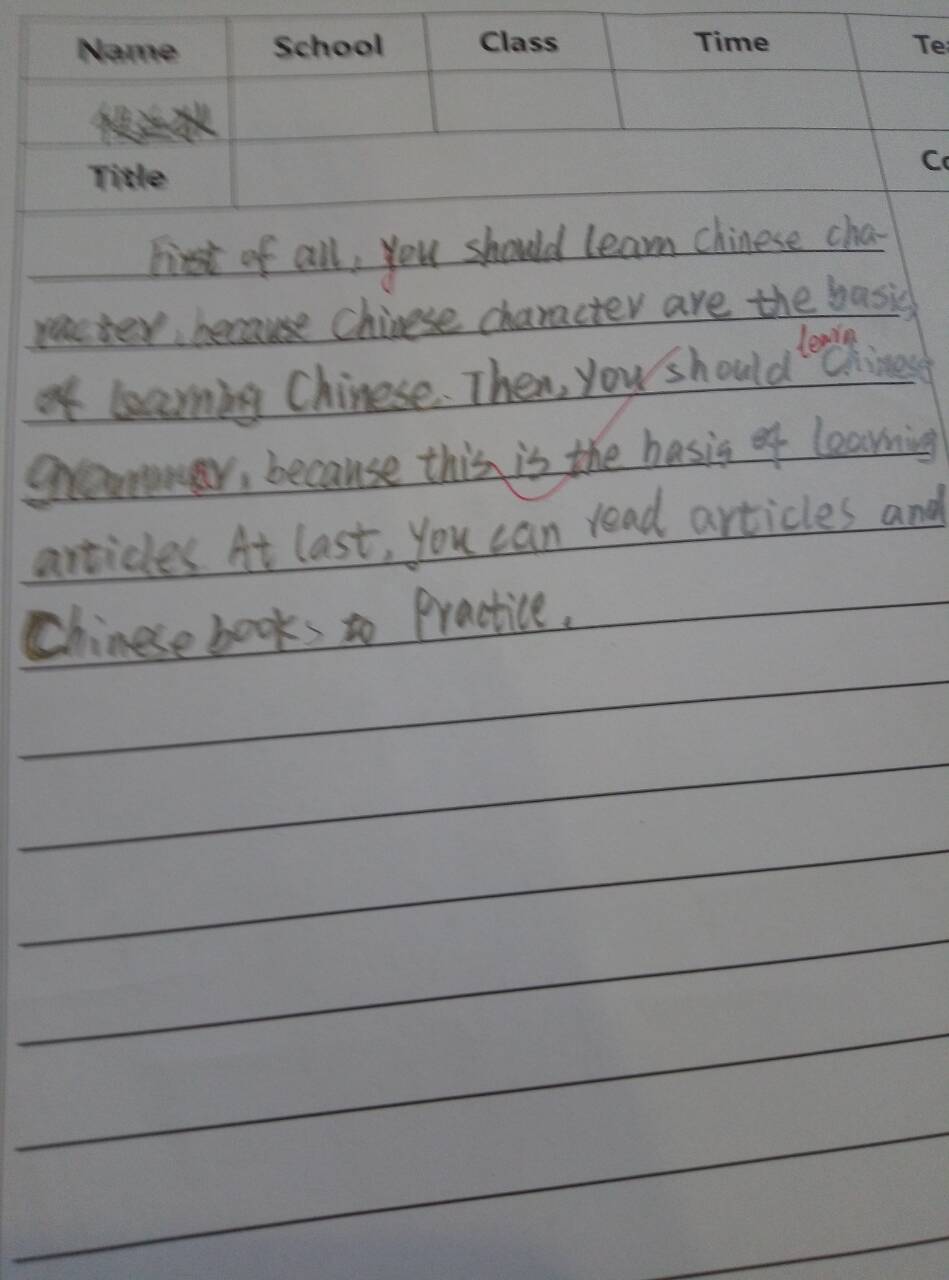 Name School Class Time Te
Title Co
First of all, you should learn Chinese cha-
racter, because Chinese character are the basis
learn
of learning Chinese. Then, you should Chinese
grammar, because this is the basis of learning
articles At last, you can read articles and
Chinese books to Practice.